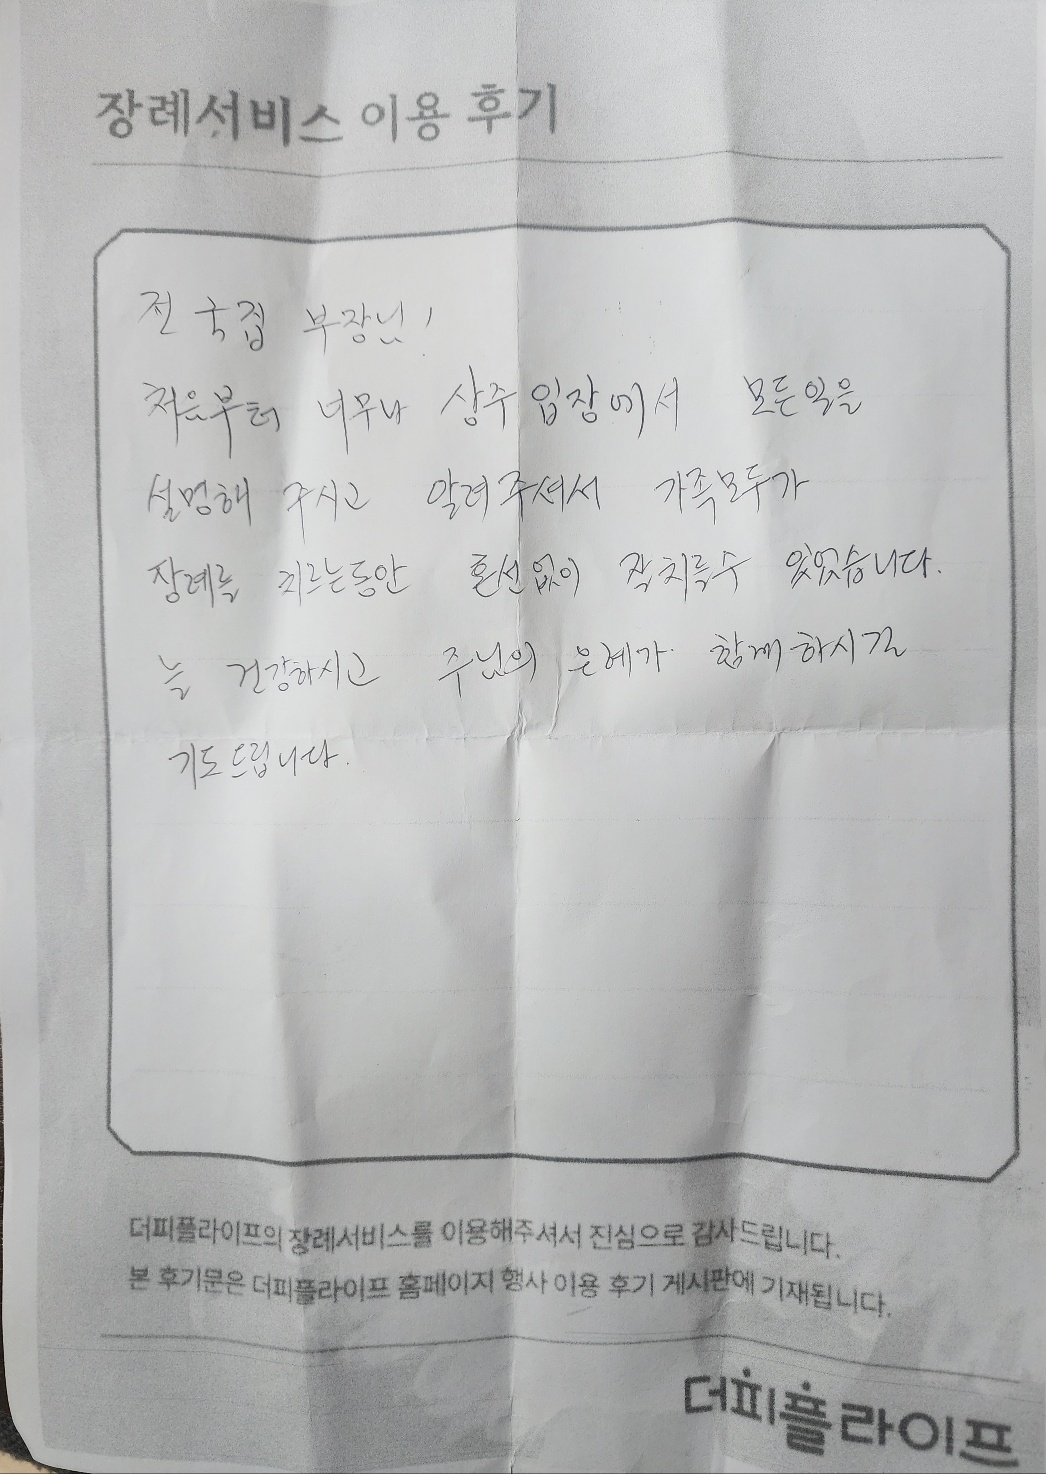 장례서비스 이용 후기
전국접 부장님!
처음부터 너무나 상주입장에서 모든일을
설명해 주시고 알려주셔서 가족모두가
장례를 치르는동안 혼선없이 잘치를수 있었습니다.
늘 건강하시고 주님의 은혜가 함께하시길
기도드립니다.
더피플라이프의 장례서비스를 이용해주셔서 진심으로 감사드립니다.
본 후기문은 더피플라이프 홈페이지 행사 이용 후기 게시판에 기재됩니다.
더피플라이프